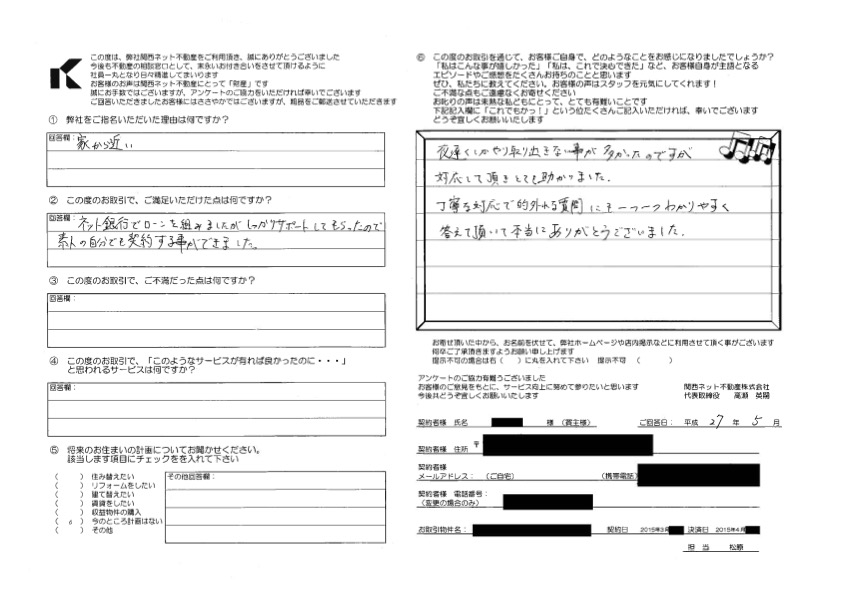 この度は、弊社関西ネット不動産をご利用頂き、誠にありがとうございました
今後も不動産の相談窓口として、末永いお付き合いをさせて頂けるように
社員一丸となり日々精進してまいります
お客様のお声は関西ネット不動産にとって「財産」です
誠にお手数ではございますが、アンケートのご協力をいただければ幸いでございます
ご回答いただきましたお客様にはささやかではございますが、粗品をご郵送させていただきます
① 弊社をご指名いただいた理由は何ですか?
回答欄:
家から近い
② この度のお取引で、ご満足いただけた点は何ですか?
回答欄:
ネット銀行でローンを組みましたがしっかりサポートしてもらったので
素人の自分でも契約する事ができました。
③ この度のお取引で、ご不満だった点は何ですか?
回答欄:
④ この度のお取引で、「このようなサービスが有れば良かったのに・・・」
と思われるサービスは何ですか?
回答欄:
⑤ 将来のお住まいの計画についてお聞かせください。
該当します項目にチェックをを入れて下さい
( ) 住み替えたい
( ) リフォームをしたい
( ) 建て替えたい
( ) 賃貸をしたい
( ) 収益物件の購入
( 0 ) 今のところ計画はない
( ) その他
その他回答欄:
⑥ この度のお取引を通じて、お客様ご自身で、どのようなことをお感じになりましたでしょうか?
「私はこんな事が嬉しかった」「私は、これで決心できた」など、お客様自身が主語となる
エピソードやご感想をたくさんお持ちのことと思います
ぜひ、私たちに教えてください。お客様の声はスタッフを元気にしてくれます!
ご不満な点もご遠慮なくお寄せください
お叱りの声は未熟な私どもにとって、とても有難いことです
下記記入欄に「これでもかっ!」という位たくさんご記入いただければ、幸いでございます
どうぞ宜しくお願いいたします
夜遅くしかやり取り出きない事が多かったのですが
対応して頂きとても助かりました。
丁寧な対応で的外れな質問にも一つ一つわかりやすく
答えて頂いて本当にありがとうございました。
お寄せ頂いた中から、お名前を伏せて、弊社ホームページや店内掲示などに利用させて頂く事がございます
何卒ご了承頂きますようお願い申し上げます
提示不可の場合は右( )に丸を入れて下さい 提示不可 ( )
アンケートのご協力有難うございました
お客様のご意見をもとに、サービス向上に努めて参りたいと思います
今後共どうぞ宜しくお願いいたします
関西ネット不動産株式会社
代表取締役 高瀬 英陽
契約者様 氏名 様 (買主様) ご回答日: 平成 27 年 5 月
契約者様 住所 〒
契約者様
メールアドレス: (ご自宅) (携帯電話)
契約者様 電話番号:
(変更の場合のみ)
お取引物件名: 契約日 2015年3月 決済日 2015年4月
担 当 松原